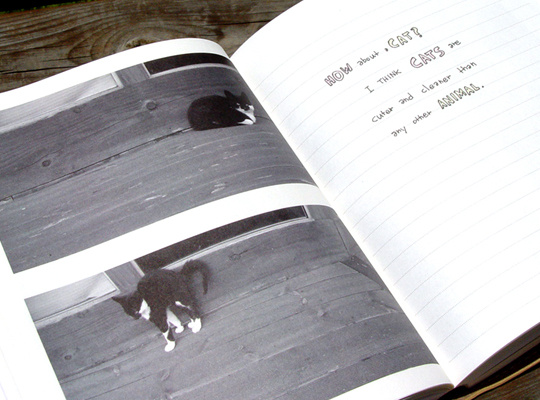 HOW about a CAT?
I THINK CATS are
cuter and cleaner than
any other ANIMAL.